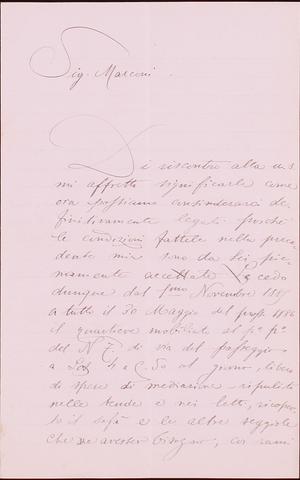 Sig. Marconi.
Di riscontro alla u. s.
mi affretto significarle come
ora possiamo considerarci de
finitivamente legati poiché
le condizioni fattele nella prece
dente mia sono da Lei pie
namente accettate. Le cedo
dunque dal 1mo Novembre 1885
a tutto il 30 Maggio del pross. 1886
il quartiere mobiliato al p° p°
del N 7 di via del passeggio
a 4 e 50 al giorno, libero
di spese di mediazione - ripulito
nelle tende e nei letti, ricoper
to il sofà e le altre seggiole
che ne avesser bisogno, così